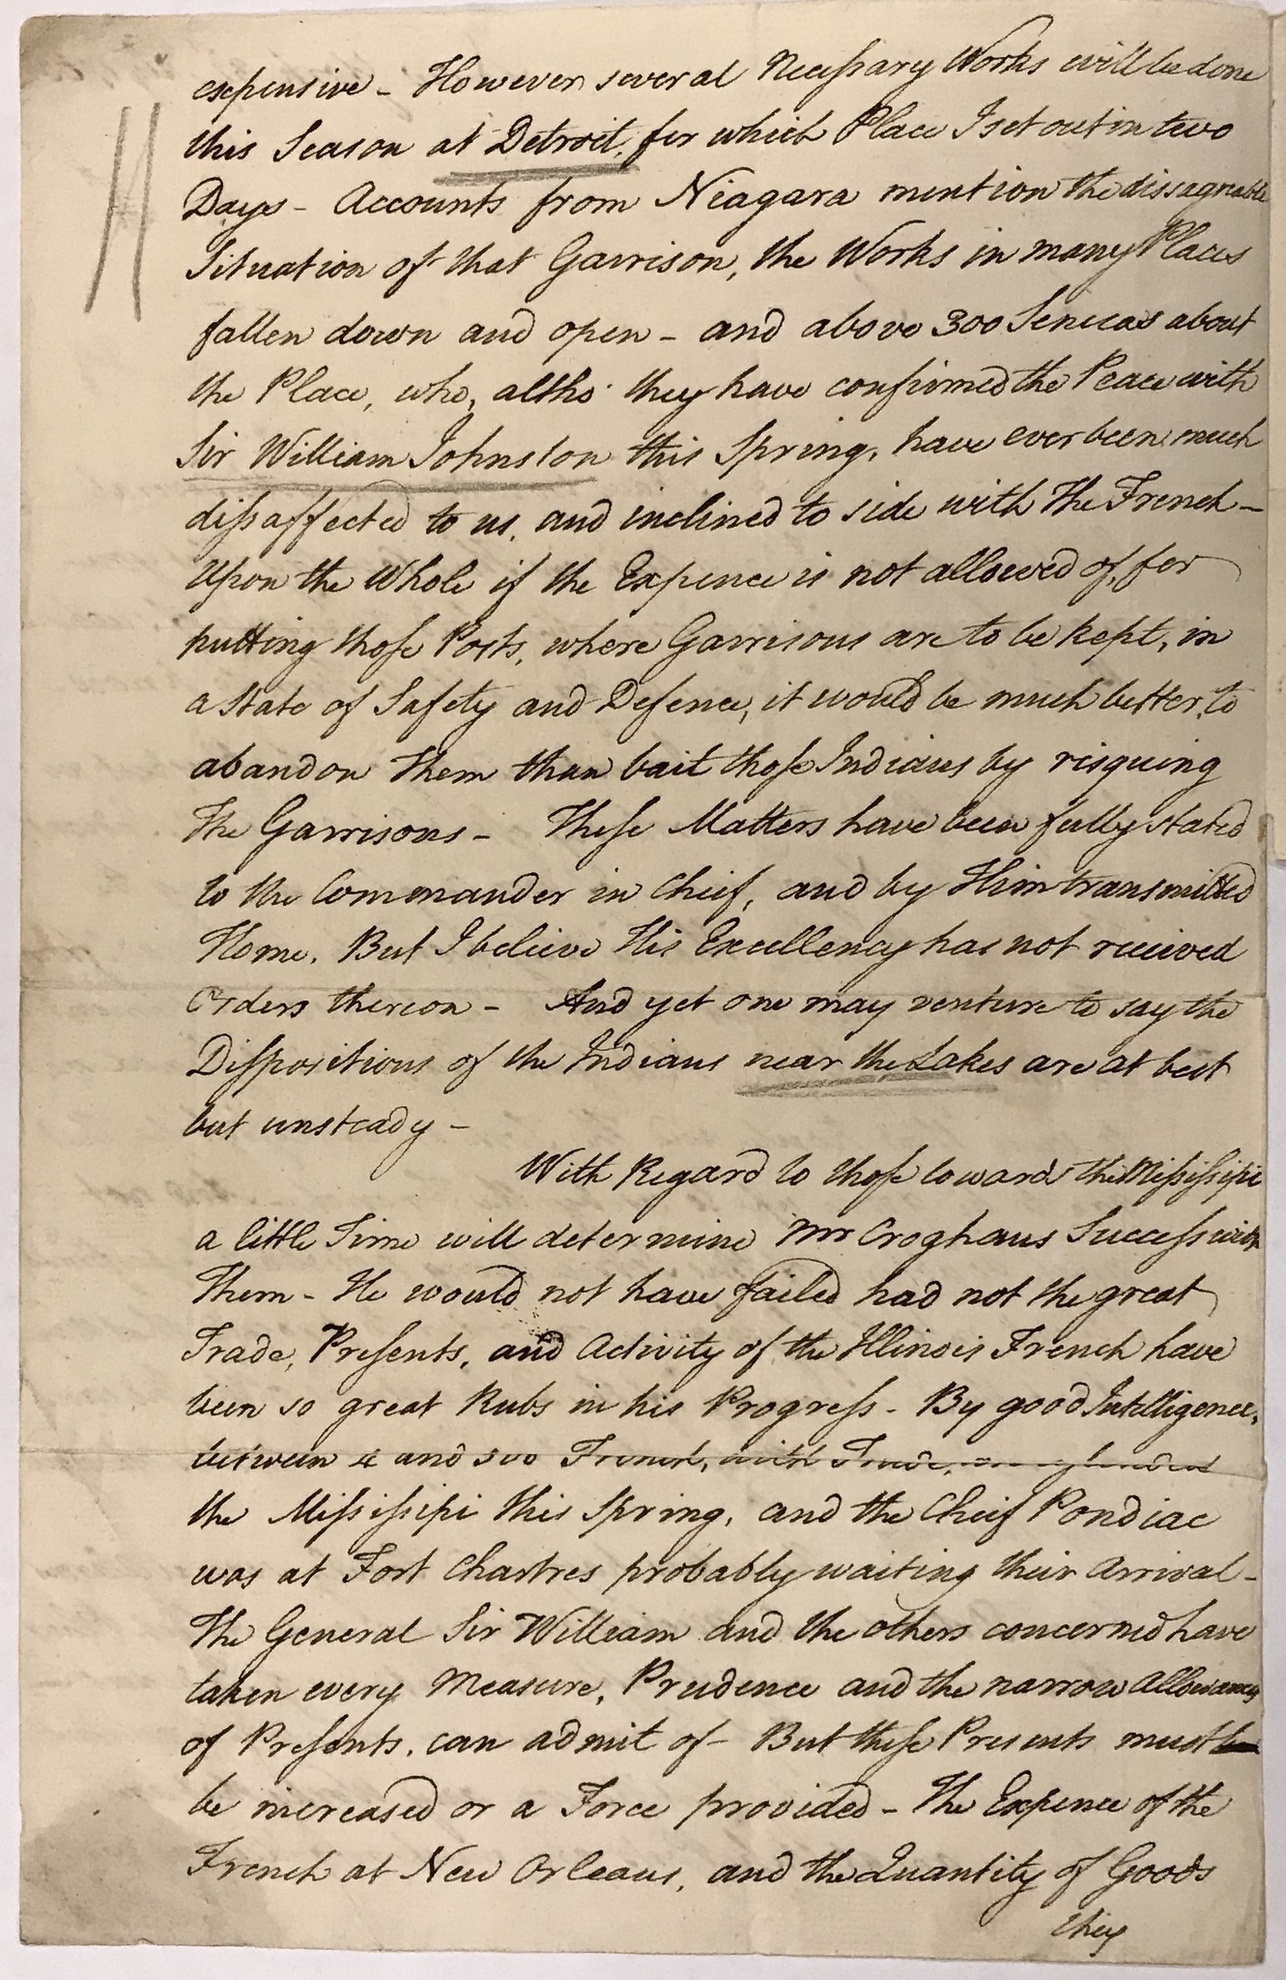 expensive - However several Necessary Works will be done
this Season at Detroit, for which Place I set out in two
Days - Accounts from Niagara mention the dissagreable
Situation of that Garrison, the Works in many Places
fallen down and open - and above 300 Senecas about
the Place, who, altho' they have confirmed the Peace with
Sir William Johnston this Spring, have ever been much
dissaffected to us, and inclined to side with the French -
Upon the Whole if the Expence is not allowed of, for
putting those Posts, where Garrisons are to be kept, in
a State of Safety and Defence, it would be much better, to
abandon them than bait those Indians by risquing
the Garrisons - These Matters have been fully stated
to the Commander in Chief, and by Him transmitted
Home. But I believe His Excellency has not received
Orders thereon - And yet one may venture to say the
Dispositions of the Indians near the Lakes are at best
but unsteady -
With Regard to those towards the Mississipi
a little Time will determine Mr Croghans Success with
Them - He would not have failed had not the great
Trade, Presents, and Activity of the Illinois French have
been so great Rubs in his Progress - By good Intelligence,
between 4 and 500 French, with Trade,
the Mississipi this Spring, and the Chief Pondiac
was at Fort Chartres probably waiting their Arrival -
The General Sir William and the others concerned have
taken every Measure, Prudence and the narrow Allowances
of Presents, can admit of - But these Presents must
be increased or a Force provided - The Expence of the
French at New Orleans, and the Quantity of Goods
they